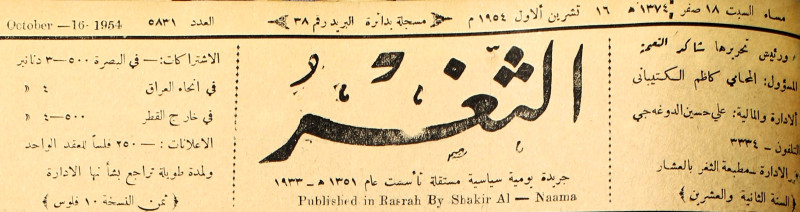 مساء السبت ١٨ صفر ١٣٧٤ هـ ١٦ تشرين الاول ١٩٥٤ م
مسجلة بدائرة البريد رقم ٣٨
العدد ٥٨٣١
October —16- 1954
ورئيس تحريرها شاكر النعمة
المسؤول: المحامي كاظم الكتيباني
الادارة والمالية: علي حسين الدوغه جي
التلفون — ٣٣٣٤
الادارة — مطبعة الثغر بالعشار
﴿ السنة الثانية والعشرين ﴾
الثغر
جريدة يومية سياسية مستقلة تأسست عام ١٣٥١ هـ — ١٩٣٣
Published in Rasrah By Shakir Al — Naama
الاشتراكات: — في البصرة ٥٠٠—٣ دنانير
في انحاء العراق ٤ »
في خارج القطر ٥٠٠—٤ »
الاعلانات: — ٢٥٠ فلساً للعقد الواحد
ولمدة طويلة تراجع بشأنها الادارة
﴿ ثمن النسخة ١٠ فلوس ﴾